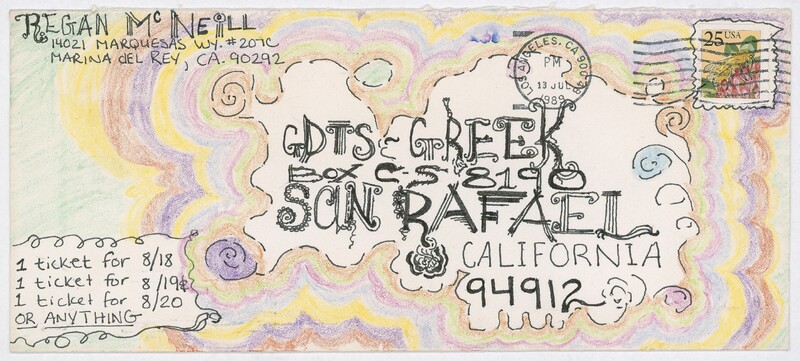 REGAN McNEILL
14021 MARQUESAS WY. #207C
MARINA DEL REY, CA. 90292
LOS ANGELES, CA 900
PM
13 JUL
1989
25 USA
GDTS-GREEK
BOX C-S 8190
SAN RAFAEL
CALIFORNIA
94912
1 ticket for 8/18
1 ticket for 8/19 &
1 ticket for 8/20
OR ANYTHING